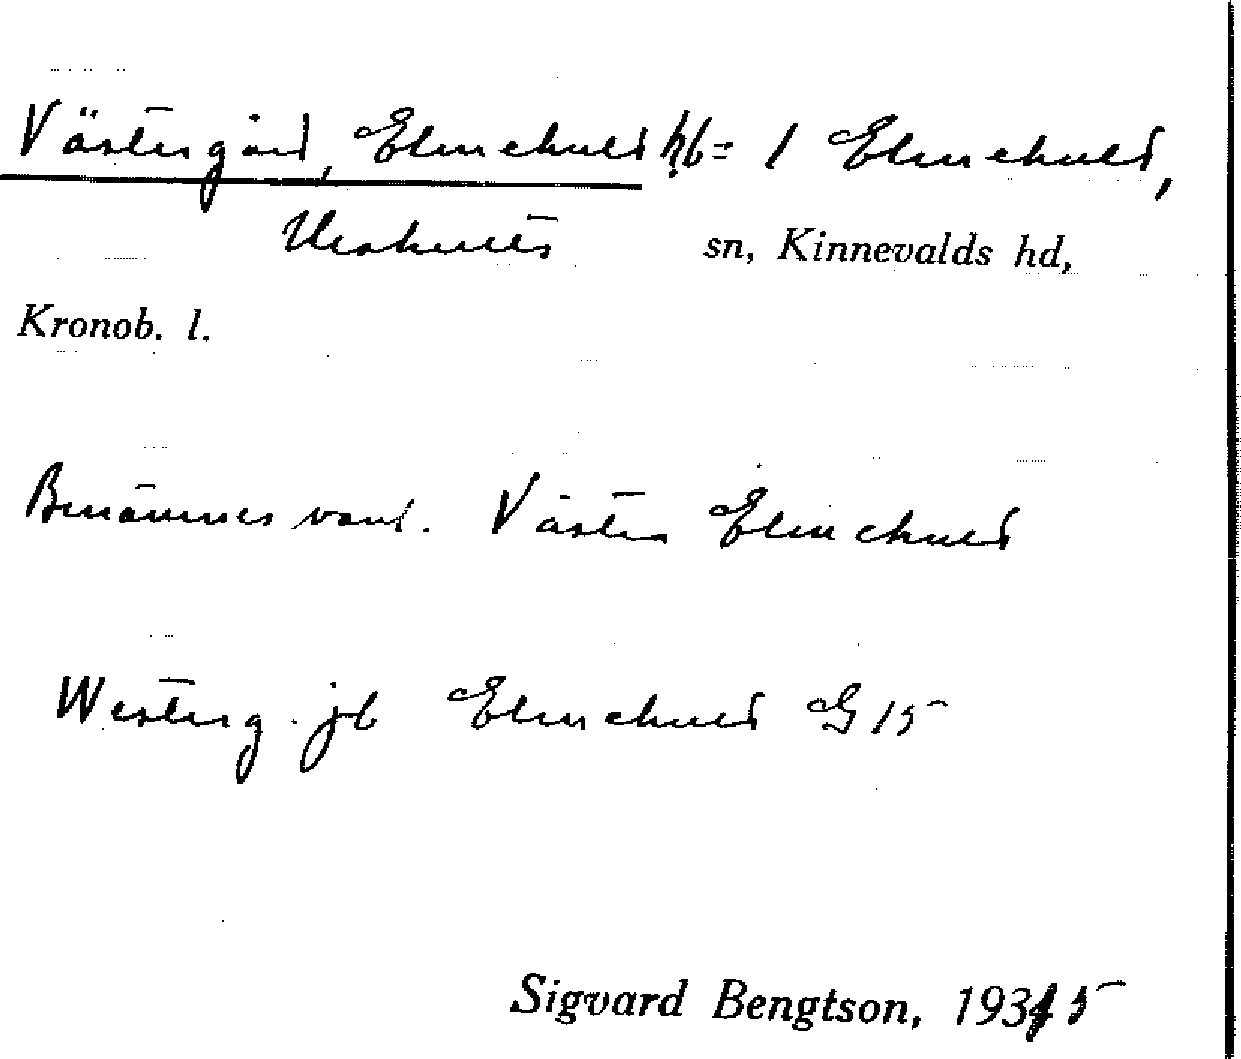 Västergård, Elmehult hb = 1 Elmehult,
Urshults sn, Kinnevalds hd,
Kronob. l.
Benämnes vanl. Väster Elmehult
Westerg. jb Elmehult G 15
Sigvard Bengtson, 1935